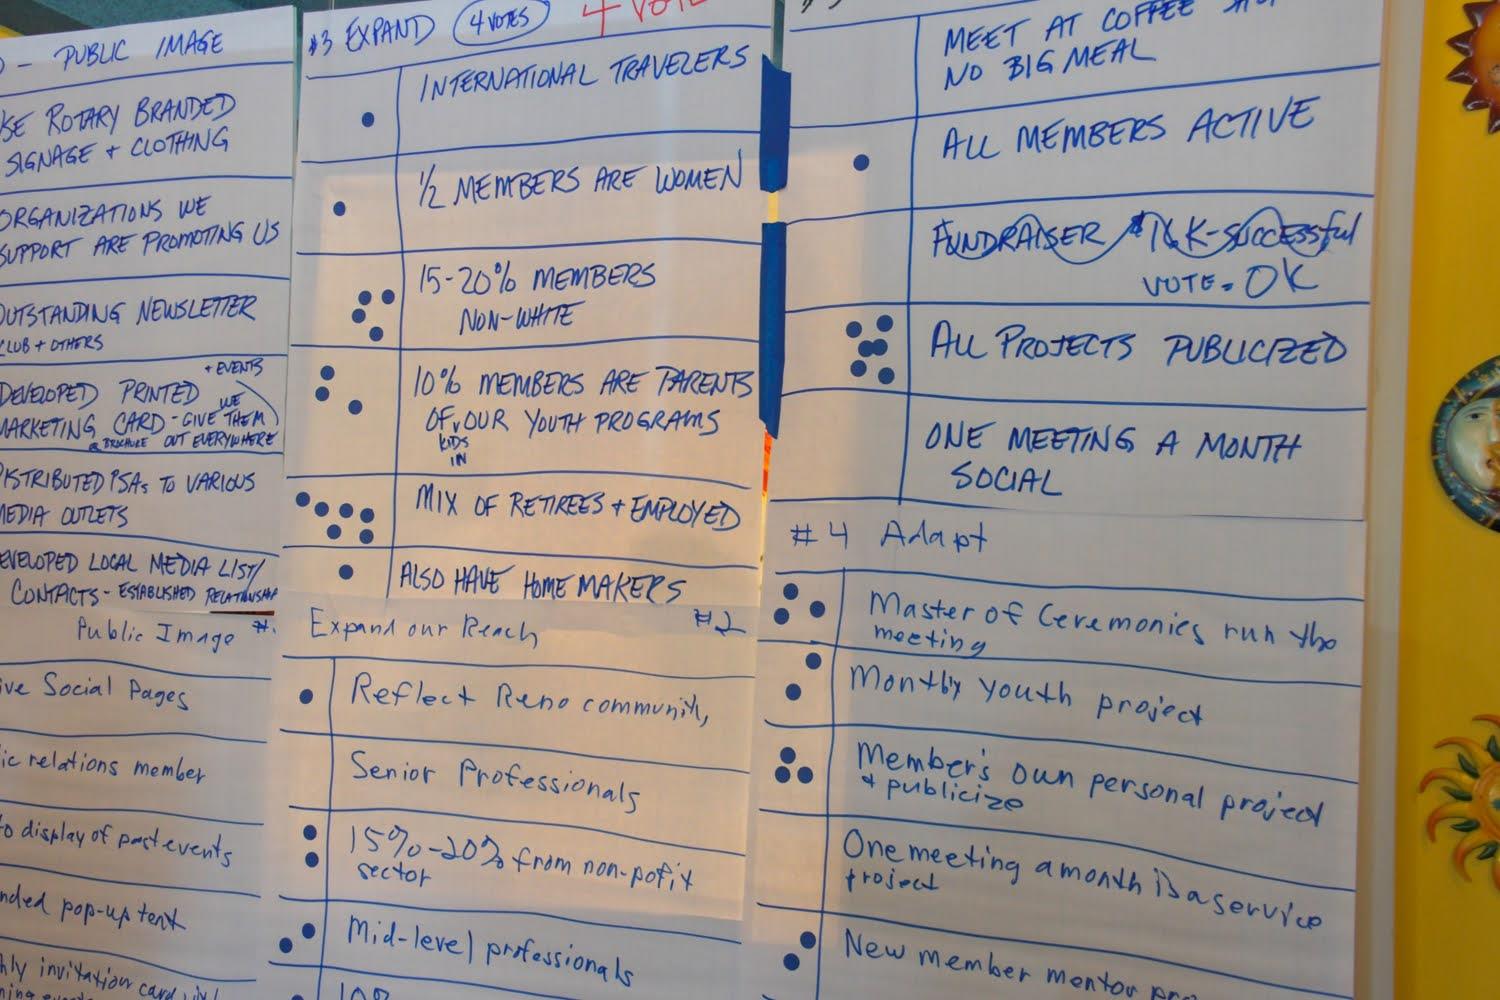 - PUBLIC IMAGE
ROTARY BRANDED
SIGNAGE + CLOTHING
ORGANIZATIONS WE
SUPPORT ARE PROMOTING US
OUTSTANDING NEWSLETTER
CLUB + OTHERS
+ EVENTS
DEVELOPED PRINTED WE
MARKETING CARD - GIVE THEM
BROCHURE OUT EVERYWHERE
DISTRIBUTED PSAs TO VARIOUS
MEDIA OUTLETS
DEVELOPED LOCAL MEDIA LIST/
CONTACTS - ESTABLISHED RELATIONSHIP
Public Image #
Social Pages
relations member
display of past events
pop-up tent
invitation card
#3 EXPAND 4 VOTES 4 VOTE
INTERNATIONAL TRAVELERS
1/2 MEMBERS ARE WOMEN
15-20% MEMBERS
NON-WHITE
10% MEMBERS ARE PARENTS
OF OUR YOUTH PROGRAMS
KIDS
IN
MIX OF RETIREES + EMPLOYED
ALSO HAVE HOMEMAKERS
Expand our Reach #2
Reflect Reno community,
Senior Professionals
15%-20% from non-pofit
sector
Mid-level professionals
10%
MEET AT COFFEE
NO BIG MEAL
ALL MEMBERS ACTIVE
FUNDRAISER $16K-SUCCESSful
VOTE = OK
ALL PROJECTS PUBLICIZED
ONE MEETING A MONTH
SOCIAL
#4 Adapt
Master of Ceremonies run the
meeting
Monthly youth project
Member's own personal project
+ publicize
One meeting a month is a service
project
New member mentor